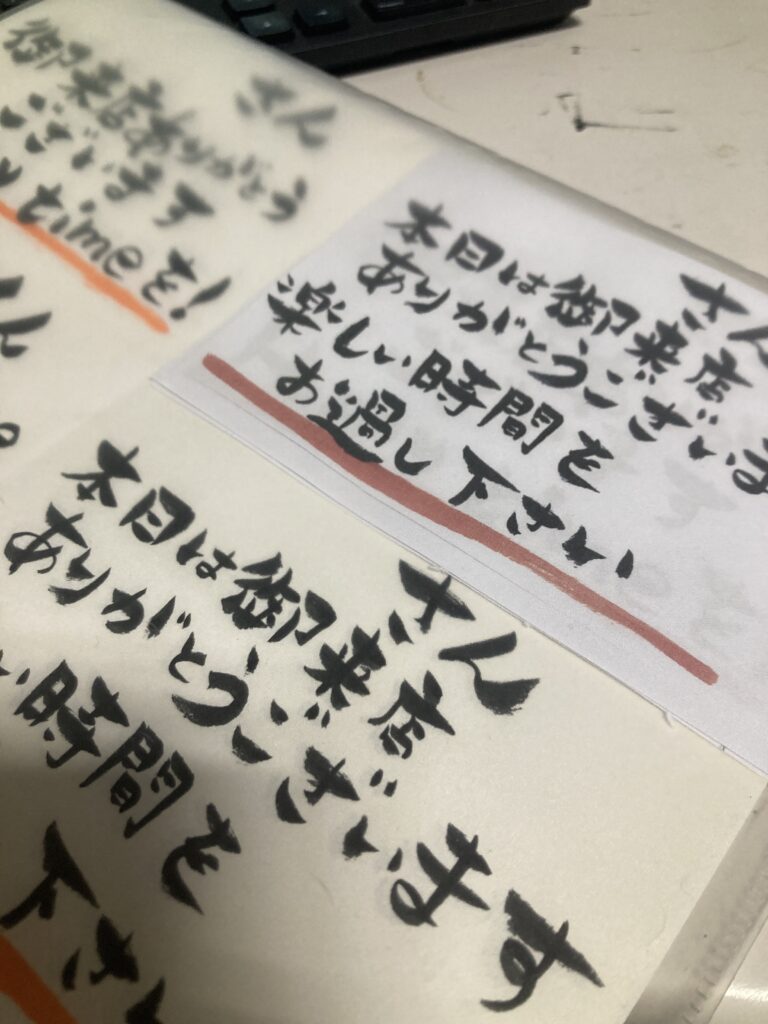 さん
御来店ありがとう
ございます
timeを!
さん
本日は御来店
ありがとうございま
楽しい時間を
お過し下さい
さん
さん
本日は御来店
ありがとうございます
い時間を
下さい